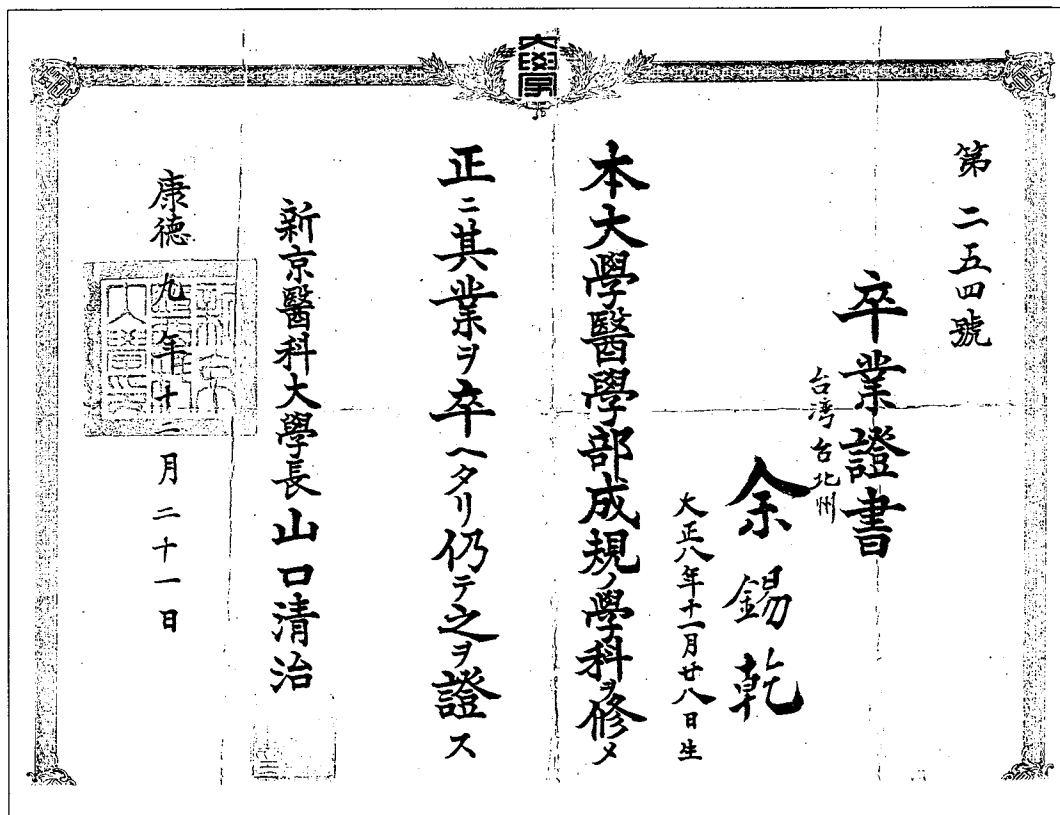 大學
第二五四號
卒業證書
台湾台北州
余錫乾
大正八年十一月廿八日生
本大學醫學部成規ノ學科ヲ修メ
正ニ其業ヲ卒ヘタリ仍テ之ヲ證ス
新京醫科大學長山口清治
康德九年十二月二十一日
新京醫科大學印